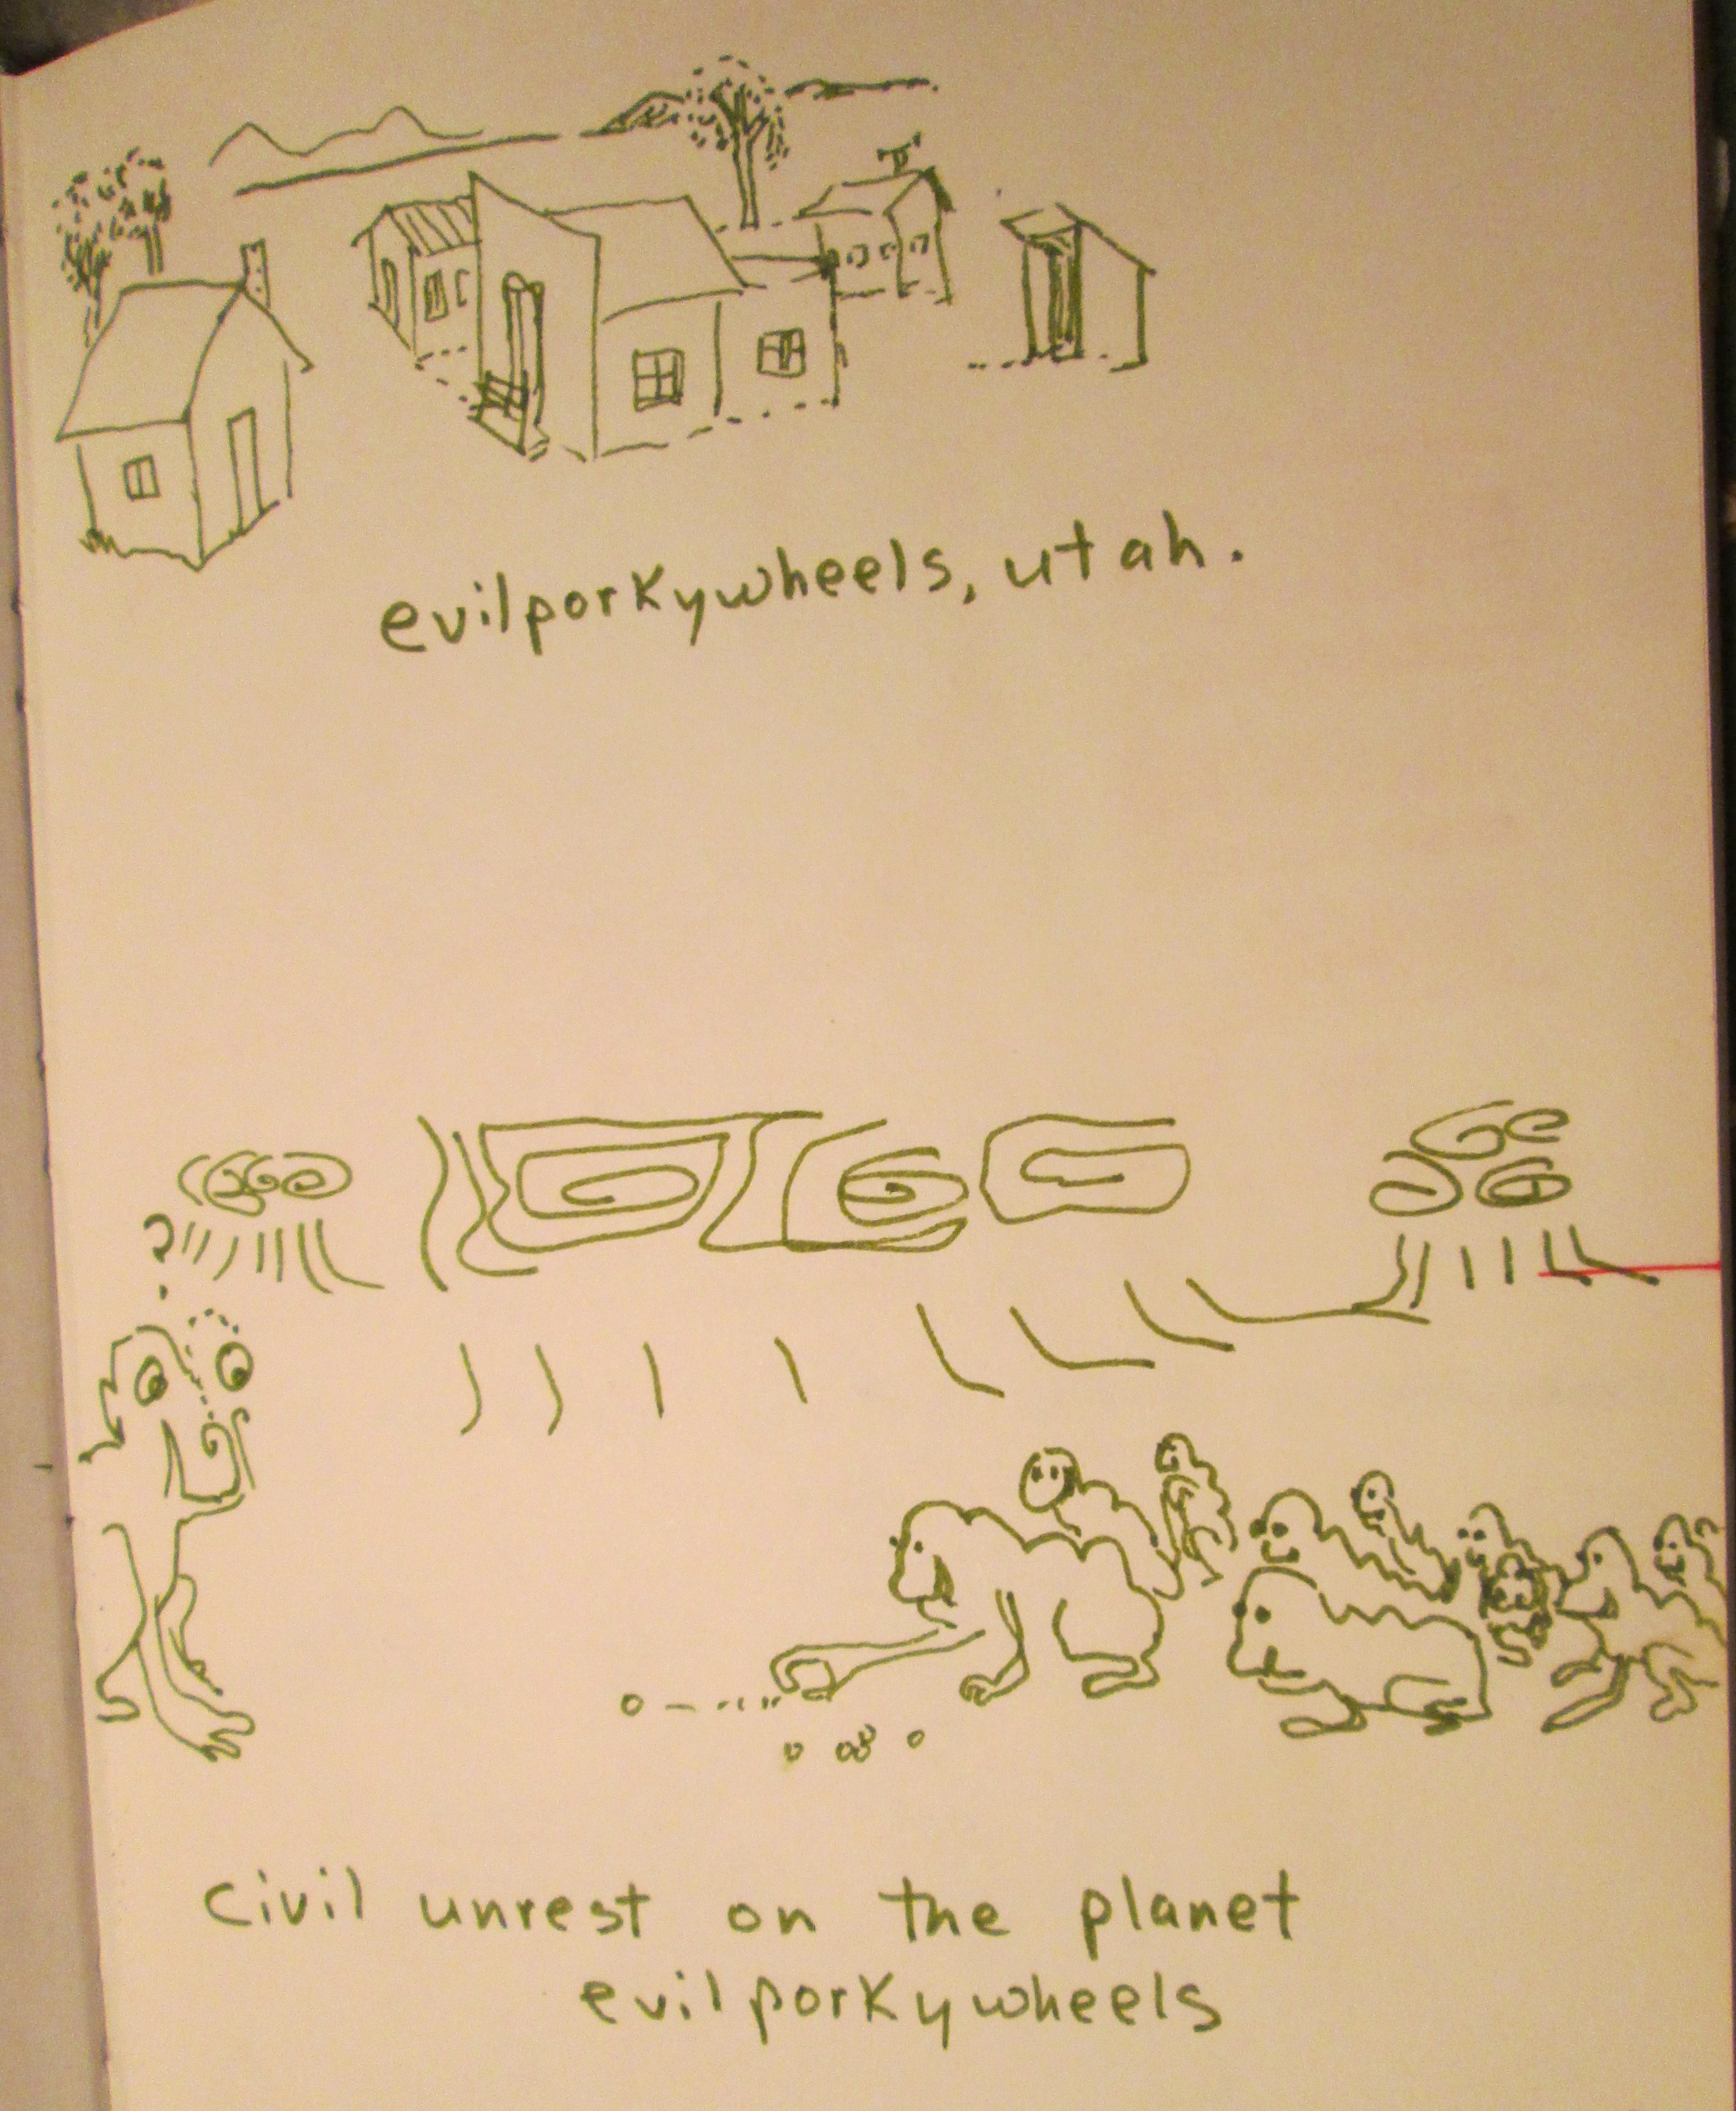 evilporkywheels, utah.
civil unrest on the planet
evilporkywheels